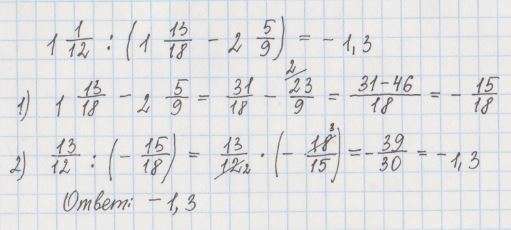 1 1/12 : (1 13/18 - 2 5/9) = -1,3
1) 1 13/18 - 2 5/9 = 31/18 - 2/ 23/9 = 31-46/18 = - 15/18
2) 13/12 : (- 15/18) = 13/12 2 · (- 18 3/15) = - 39/30 = -1,3
Ответ: -1,3